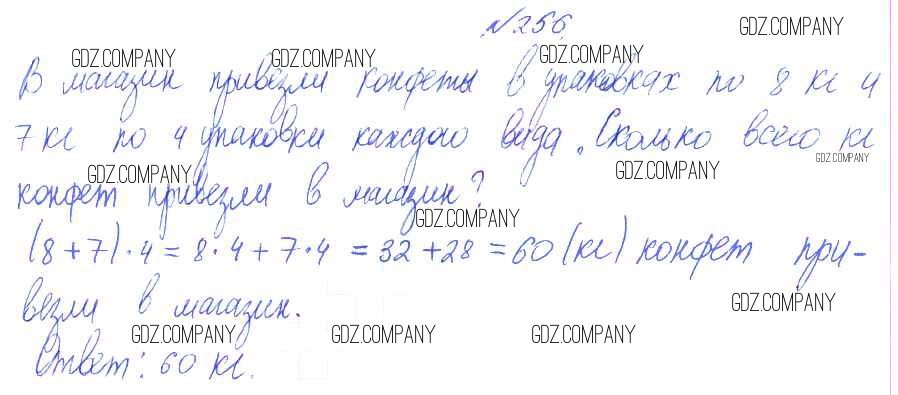 №256
В магазин привезли конфеты в упаковках по 8 кг и
7 кг по 4 упаковки каждого вида. Сколько всего кг
конфет привезли в магазин?
(8+7)·4=8·4+7·4=32+28=60(кг) конфет при-
везли в магазин.
Ответ: 60 кг.
GDZ.COMPANY
GDZ.COMPANY
GDZ.COMPANY
GDZ.COMPANY
GDZ.COMPANY
GDZ.COMPANY
GDZ.COMPANY
GDZ.COMPANY
GDZ.COMPANY
GDZ.COMPANY
GDZ.COMPANY
GDZ.COMPANY